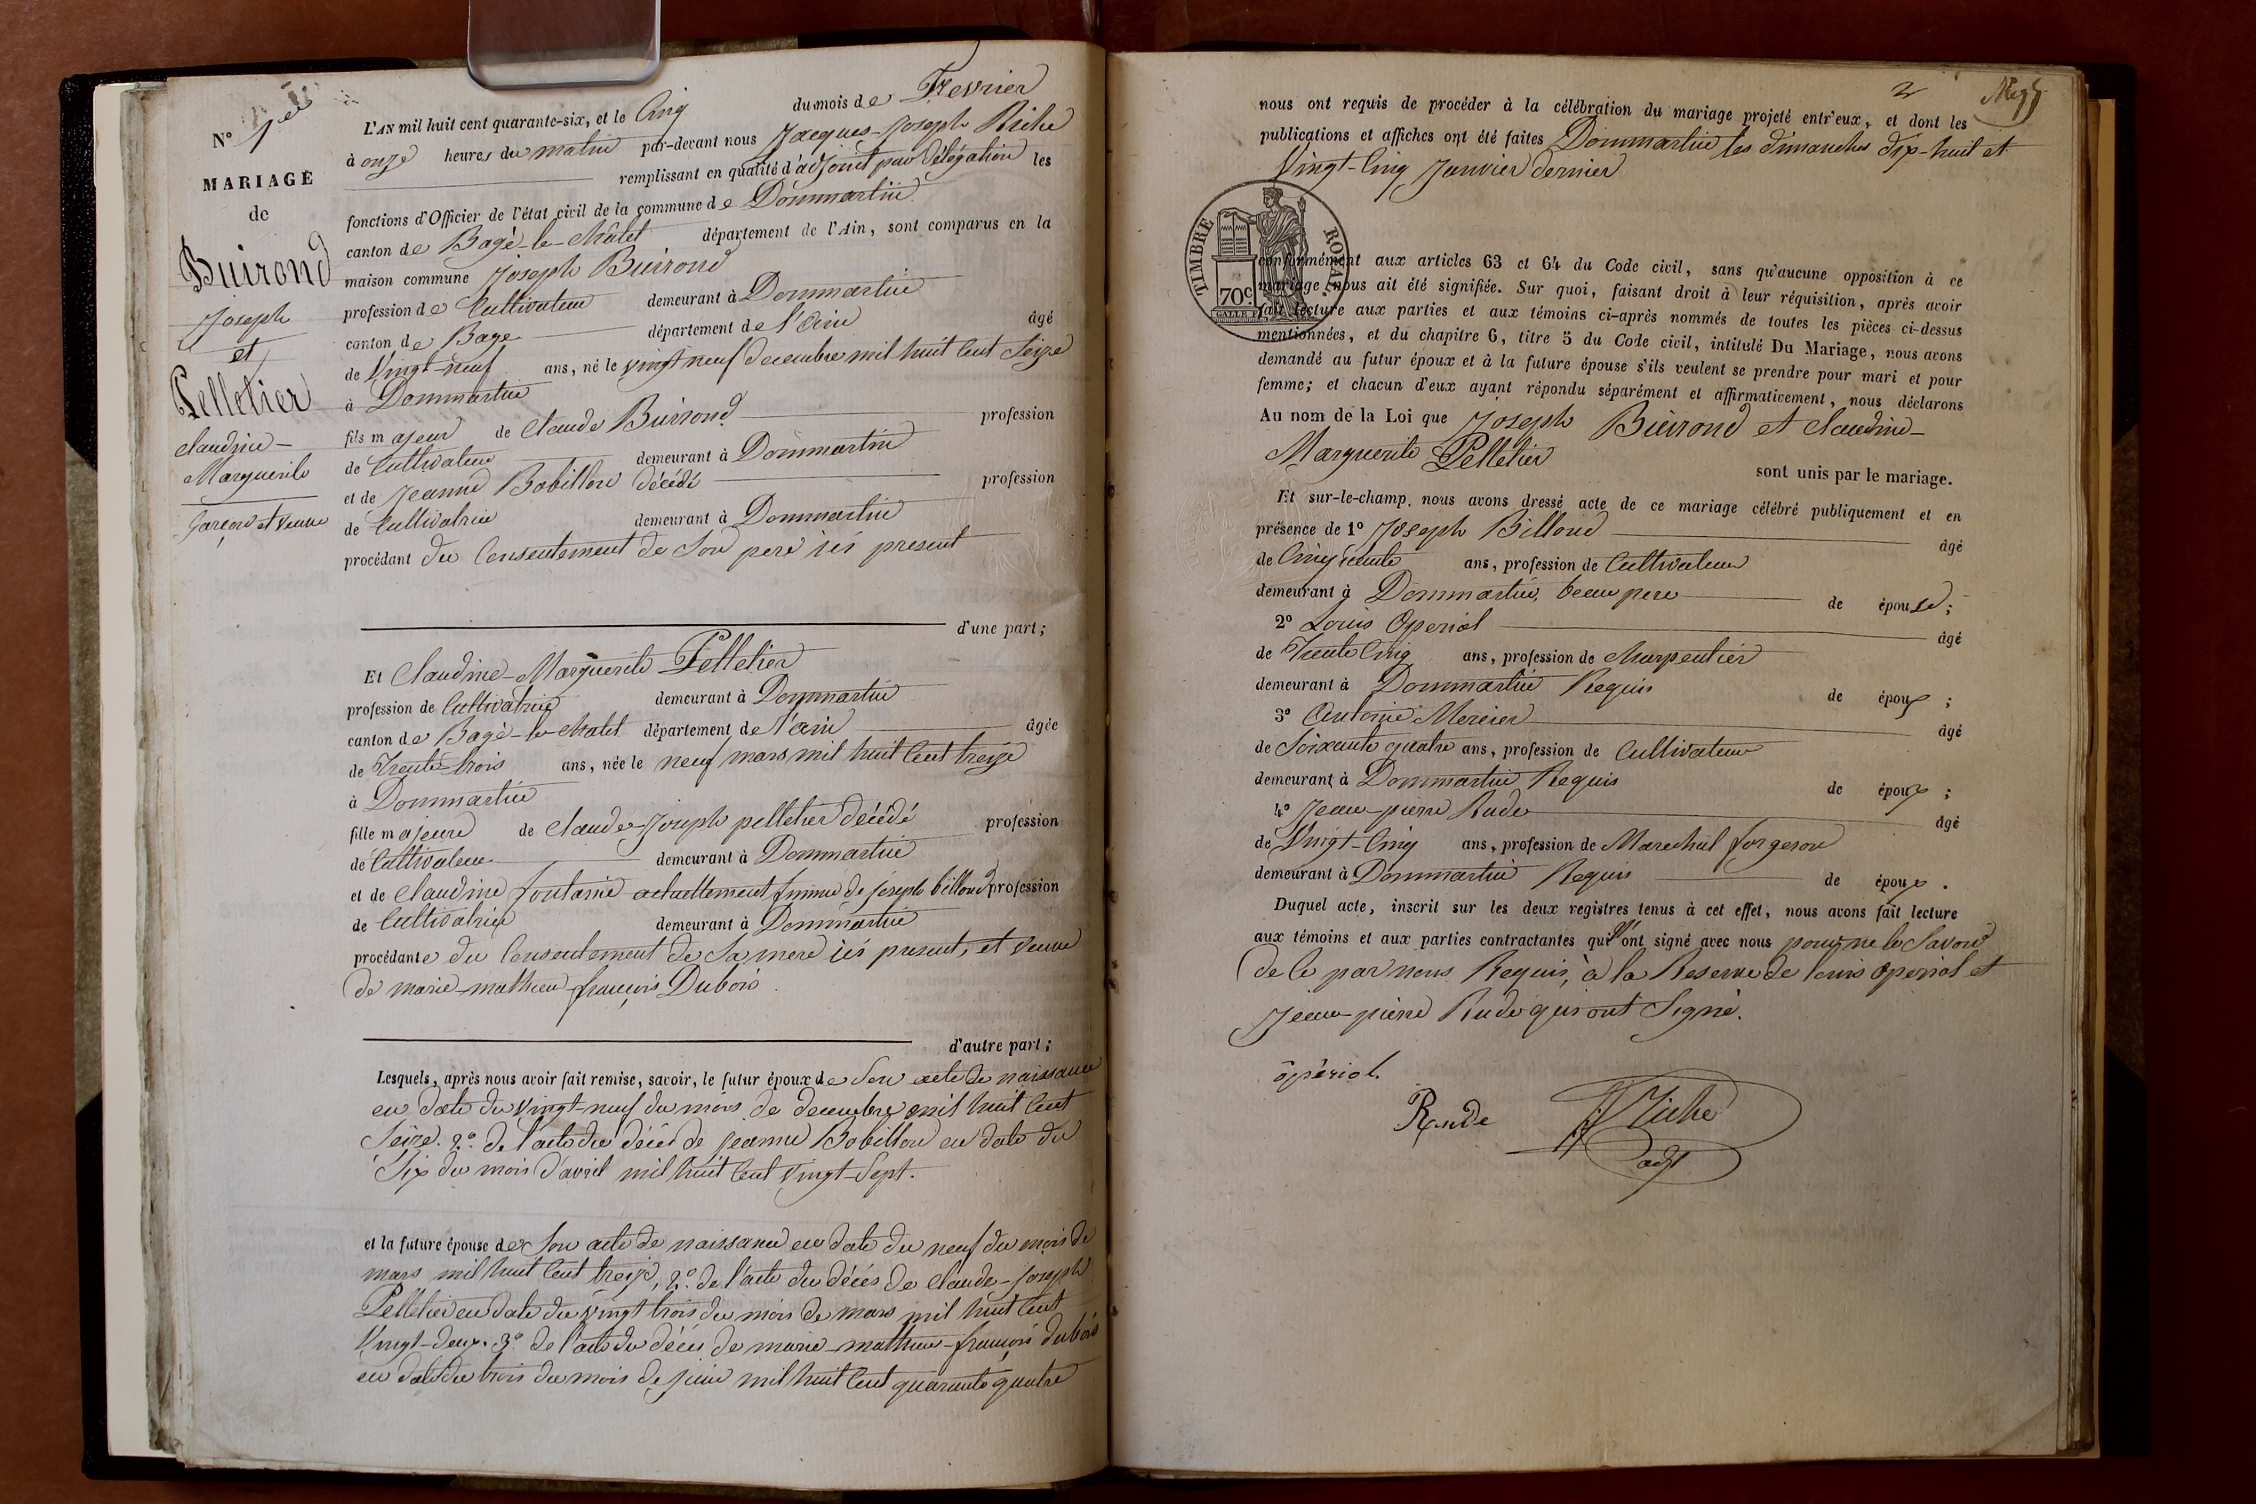 N° 1er
MARIAGE
de
Buirond
Joseph
et
Pelletier
Claudine-
Marguerite
Garçon et veuve
L'AN mil huit cent quarante-six, et le Cinq du mois de Fevrier
à onze heures du matin par-devant nous Jacques-Joseph Riche
remplissant en qualité d'adjoint par délégation les
fonctions d'Officier de l'état civil de la commune de Dommartin
canton de Bagé-le-Châtel département de l'Ain, sont comparus en la
maison commune Joseph Buirond
profession de Cultivateur demeurant à Dommartin
canton de Bage département de l'ain âgé
de Vingt-neuf ans, né le vingt neuf decembre mil huit Cent Seize
à Dommartin
fils majeur de Claude Buirond profession
de Cultivateur demeurant à Dommartin
et de Jeanne Bobillon décédé profession
de Cultivatrice demeurant à Dommartin
procédant du Consentement de Son pere ici present
d'une part;
Et Claudine-Marguerite Pelletier
profession de Cultivatrice demeurant à Dommartin
canton de Bagé-le-Chatel département de l'ain âgée
de Trente-trois ans, née le neuf mars mil huit Cent treize
à Dommartin
fille majeure de Claude-Joseph pelletier décédé profession
de Cultivateur demeurant à Dommartin
et de Claudine fontaine actuellement femme de joseph billoud profession
de Cultivatrice demeurant à Dommartin
procédante du Consentement de Sa mere ici present, et veuve
de marie-mathieu-françois Dubois
d'autre part;
Lesquels, après nous avoir fait remise, savoir, le futur époux de Son acte de naissance
en date du vingt-neuf du mois de decembre mil huit Cent
Seize. 2° de l'acte du décés de jeanne Bobillon en date du
Six du mois d'avril mil huit Cent Vingt-Sept.
et la future épouse de Son acte de naissance en date du neuf du mois de
mars mil huit Cent treize, 2°. de l'acte du décés de Claude-joseph
Pelletier en date du vingt trois du mois de mars mil huit Cent
Vingt-deux. 3° de l'acte du décés de marie-mathieu-françois dubois
en date du trois du mois de juin mil huit Cent quarante quatre
2
nous ont requis de procéder à la célébration du mariage projeté entr'eux, et dont les
publications et affiches ont été faites Dommartin les dimanches dix-huit et
Vingt-Cinq Janvier dernier
TIMBRE ROYAL.
70c.
conformément aux articles 63 et 64 du Code civil, sans qu'aucune opposition à ce
mariage nous ait été signifiée. Sur quoi, faisant droit à leur réquisition, après avoir
fait lecture aux parties et aux témoins ci-après nommés de toutes les pièces ci-dessus
mentionnées, et du chapitre 6, titre 5 du Code civil, intitulé Du Mariage, nous avons
demandé au futur époux et à la future épouse s'ils veulent se prendre pour mari et pour
femme; et chacun d'eux ayant répondu séparément et affirmativement, nous déclarons
Au nom de la Loi que Joseph Buirond et Claudine-
Marguerite Pelletier
sont unis par le mariage.
Et sur-le-champ, nous avons dressé acte de ce mariage célébré publiquement et en
présence de 1° Joseph Billoud âgé
de Cinquante ans, profession de Cultivateur
demeurant à Dommartin, beau pere de épouse;
2° Louis Operiol âgé
de Trente Cinq ans, profession de Charpentier
demeurant à Dommartin Requis de époux;
3° Antoine Mercier âgé
de Soixante quatre ans, profession de Cultivateur
demeurant à Dommartin Requis de époux;
4° Jean-pierre Rude âgé
de Vingt-Cinq ans, profession de Marechal forgeron
demeurant à Dommartin Requis de époux.
Duquel acte, inscrit sur les deux registres tenus à cet effet, nous avons fait lecture
aux témoins et aux parties contractantes qui n'ont signé avec nous pour ne le Savoir
de ce par nous Requis, à la Reserve de louis operiol et
Jean-pierre Rude qui ont Signé.
opériol.
Rude
JJ Riche
adjt